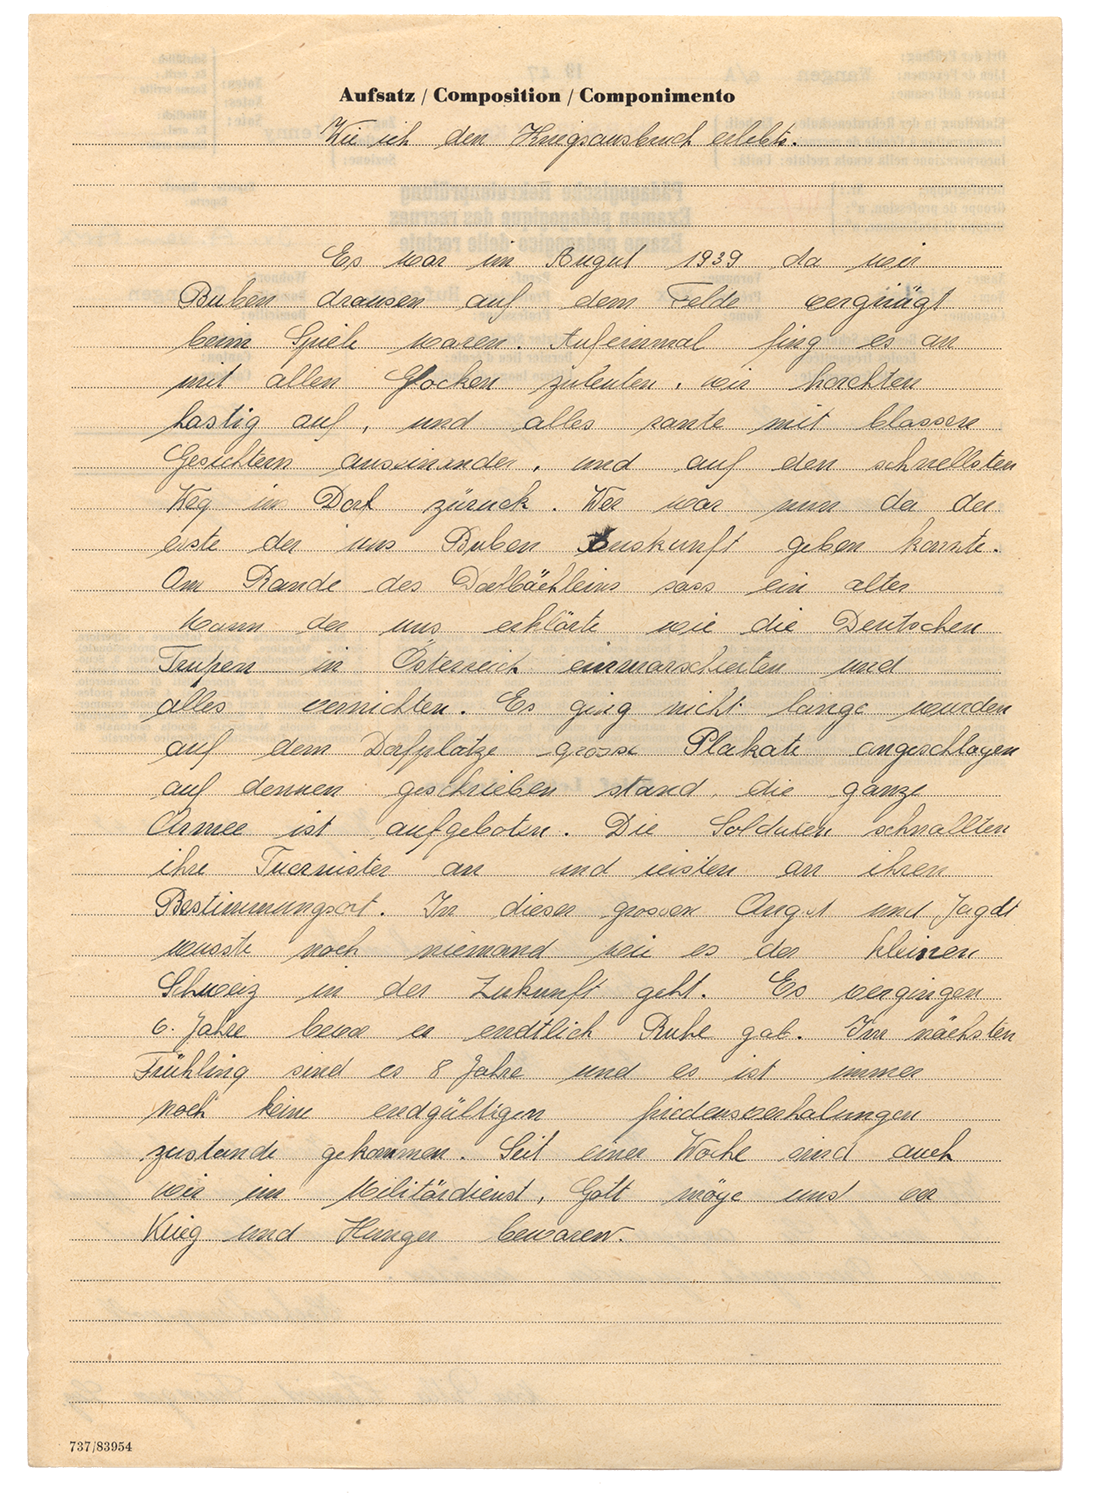 Aufsatz / Composition / Componimento
Wie ich den Kriegsausbruch erlebte.
Es war im Augut 1939 da wir
Buben drausen auf dem Felde vergnügt
beim Spiele waren. Aufeinmal fing es an
mit allen Glocken zuleuten, wir horchten
hastig auf, und alles rante mit blassen
Gesichtern auseinander, und auf den schnellsten
Weg in Dorf zürück. Wer war nun da der
erste der uns Buben Auskunft geben konnte.
Am Rande des Dorfbächleins sass ein alter
Mann der uns erklärte wie die Deutschen
Trupen in Österreich einmarschierten und
alles vernichten. Es ging nicht lange wurden
auf dem Dorfplatze grosse Plakate angeschlagen
auf dennen geschrieben stand, die ganze
Armee ist aufgeboten. Die Soldaten schnallten
ihre Tuernister an und reisten an ihren
Bestimmungsort. In dieser grossen Angst und Jagdt
wusste noch niemand wie es der kleinen
Schweiz in der Zukunft geht. Es vergingen
6. Jahre bevor es endtlich Ruhe gab. Im nächsten
Frühling sind es 8 Jahre und es ist immer
noch keine endgültigen friedensverhalungen
zustande gekommen. Seit einer Woche sind auch
wir im Militärdienst, Gott möge uns vor
Krieg und Hunger bewaren.
737/83954